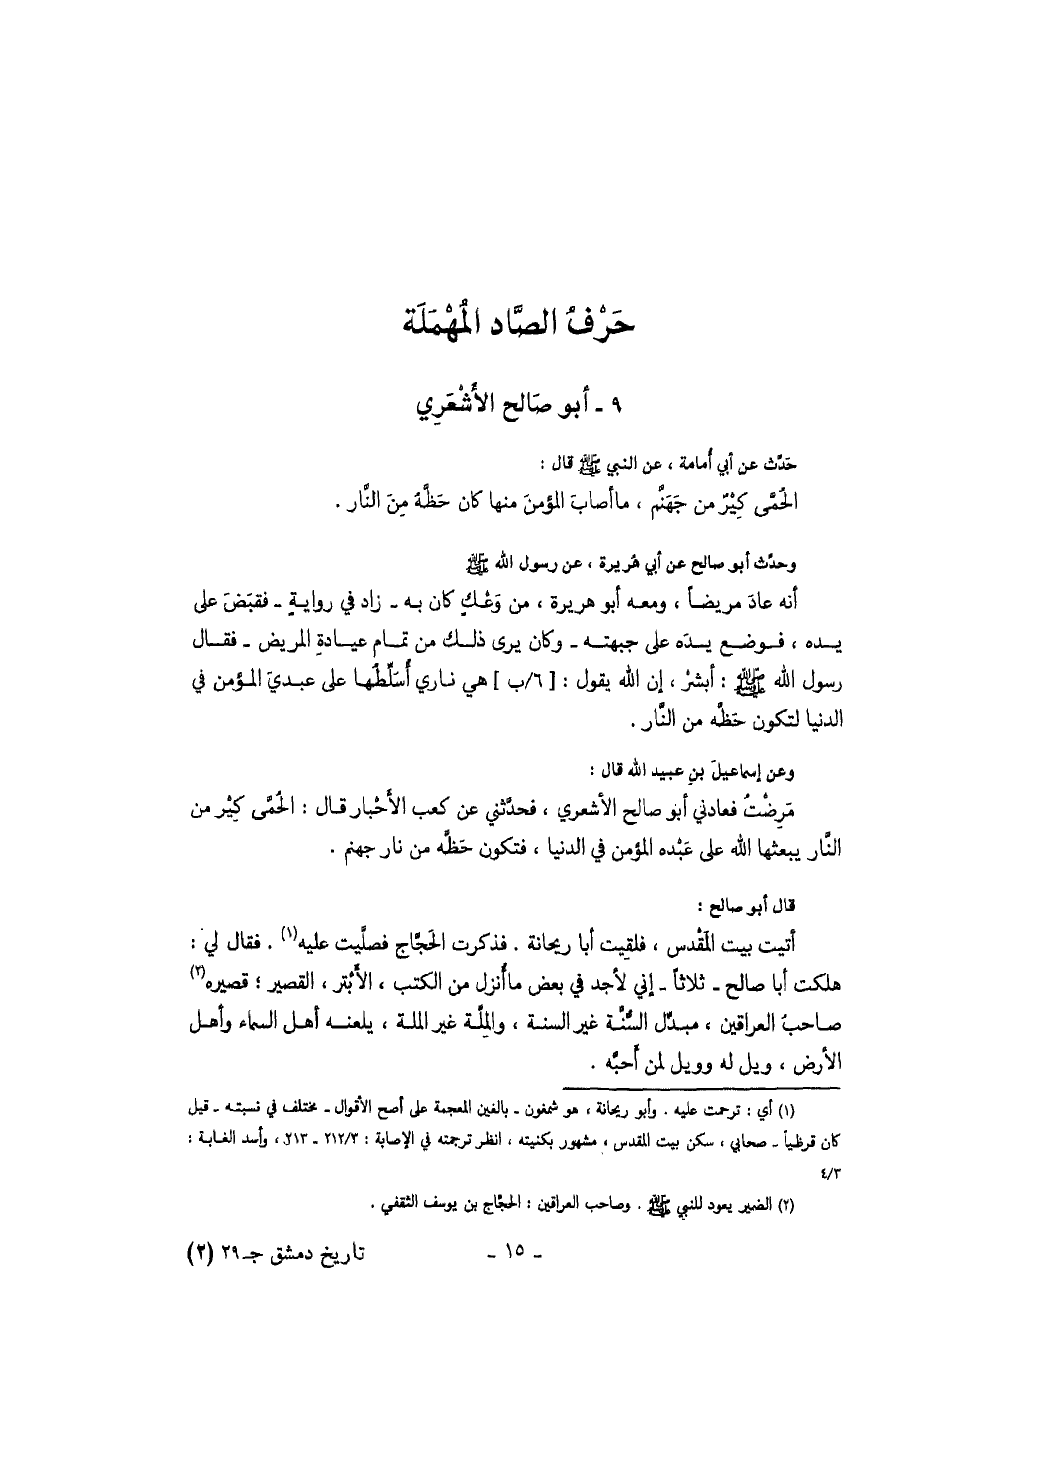 حَرْفُ الصَّاد المُهْمَلَة
٩ ـ أبو صَالح الأَشْعَرِي
حَدَّث عن أبي أُمامة ، عن النبي ﷺ قال :
الحُمَّى كِيْرٌ من جَهَنَّم ، ماأصابَ المؤمنَ منها كان حَظَّهُ مِنَ النَّار .
وحدَّث أبو صالح عن أبي هُريرة ، عن رسول الله ﷺ
أنه عادَ مريضاً ، ومعه أبو هريرة ، من وَعْكٍ كان به ـ زاد في روايةٍ ـ فقبَضَ على
يده ، فوضع يدَه على جبهته ـ وكان يرى ذلك من تمام عيادةِ المريض ـ فقال
رسول الله ﷺ : أبشرْ ، إن الله يقول : [ ٦/ب ] هي ناري أُسَلِّطُها على عبديَ المؤمن في
الدنيا لتكون حَظَّه من النَّار .
وعن إسماعيلَ بنِ عبيد الله قال :
مَرِضْتُ فعادني أبو صالح الأشعري ، فحدَّثني عن كعب الأَحْبار قال : الحُمَّى كِيْر من
النَّار يبعثها الله على عَبْده المؤمن في الدنيا ، فتكون حَظَّه من نار جهنم .
قال أبو صالح :
أتيت بيت المَقْدس ، فلقِيت أبا ريحانة . فذكرت الحَجَّاج فصلَّيت عليه(١) . فقال لي :
هلكت أبا صالح ـ ثلاثاً ـ إني لأجد في بعض ماأُنزل من الكتب ، الأَبْتر ، القصير ؛ قصيره(٢)
صاحبُ العراقين ، مبدِّل السُّنَّة غير السنة ، والمِلَّة غير الملة ، يلعنه أهل السماء وأهل
الأرض ، ويل له وويل لمن أَحبَّه .
(١) أي : ترحمت عليه . وأبو ريحانة ، هو شمغون ـ بالغين المعجمة على أصح الأقوال ـ مختلف في نسبته ـ قيل
كان قرظياً ـ صحابي ، سكن بيت المقدس ، مشهور بكنيته ، انظر ترجمته في الإصابة : ٢١٢/٣ ـ ٢١٣ ، وأسد الغابة :
٤/٣
(٢) الضمير يعود للنبي ﷺ . وصاحب العراقين : الحجَّاج بن يوسف الثقفي .
ـ ١٥ ـ
تاريخ دمشق جـ٢٩ (٢)